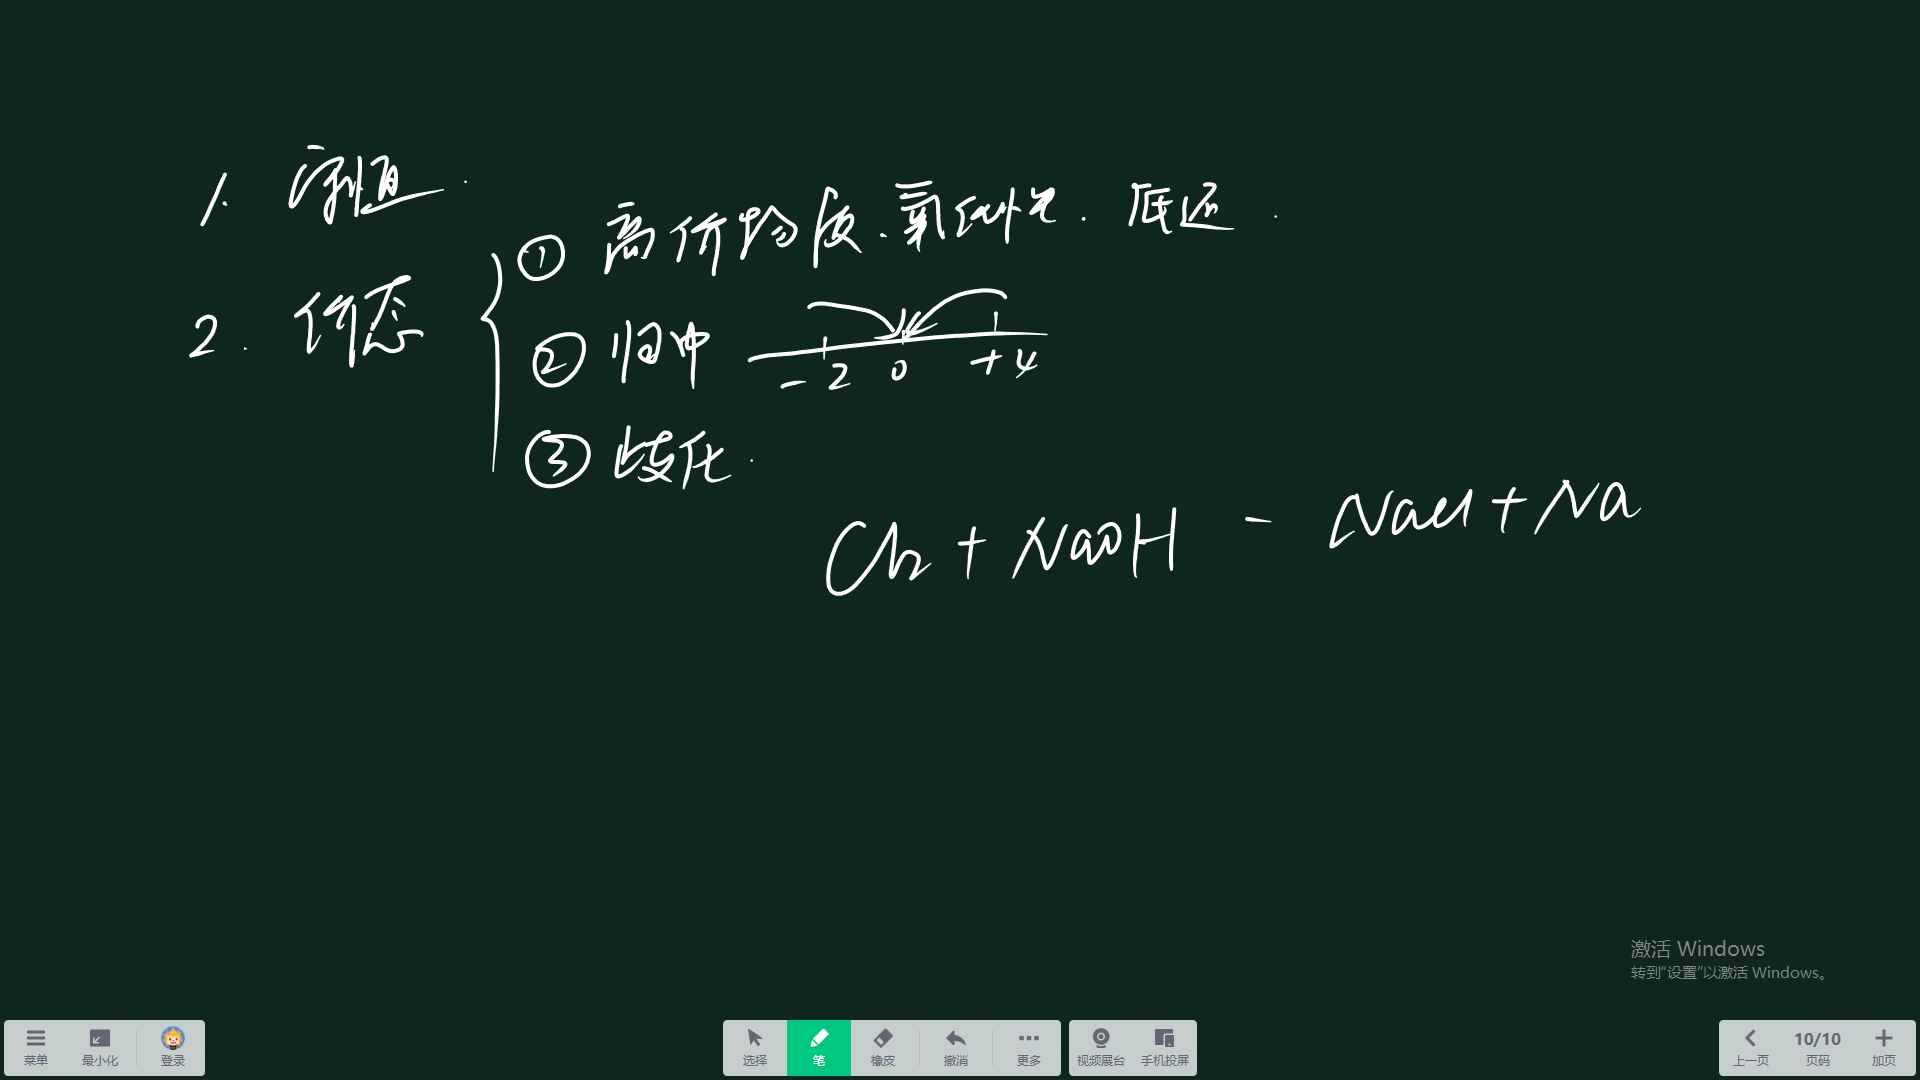 1. 守恒.
2. 价态
① 高价物质.氧化性.底还.
② 归中
-2 0 +4
③ 歧化.
Cl2 + NaOH - NaCl + Na
激活 Windows
转到“设置”以激活 Windows。
菜单 最小化 登录 选择 笔 橡皮 撤消 更多 视频展台 手机投屏 上一页 10/10 页码 加页